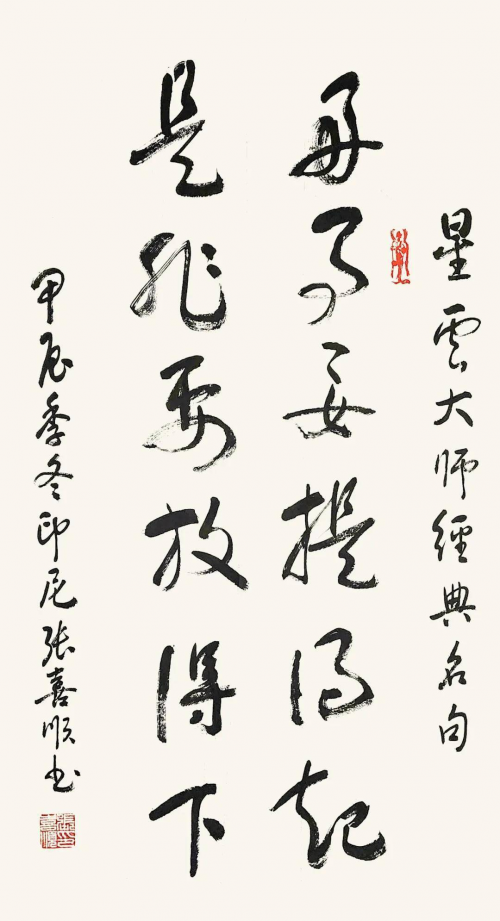 星雲大師經典名句
每事要提得起
是非要放得下
甲辰季冬印尼張喜順书